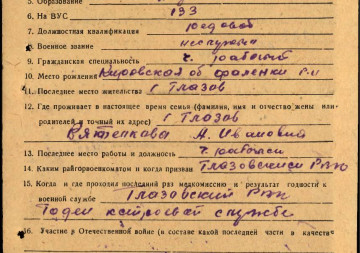 5. Образование
6. На ВУС 133
7. Должностная квалификация рядовой
8. Военное звание
9. Гражданская специальность ч. рабочий
10. Место рождения Кировская об Фаленки р-н
11. Последнее место жительства г Глазов
12. Где проживает в настоящее время семья (фамилия, имя и отчество жены или
родителей и точный их адрес) г Глазов
Ивановна
13. Последнее место работы и должность ч. рабочий
14. Каким райгорвоенкоматом и когда призван Глазовским РВК
15. Когда и где проходил последний раз медкомиссию и результат годности к
военной службе Глазовский РВК
Годен к строевой службе
16. Участие в Отечественной войне (в составе какой последней части в качестве